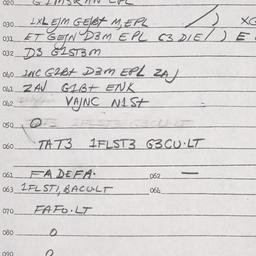 020 G1MSKAN CPL
030 1XLEJM GEBT M,EPL / ) XG
031 ET GEJN D3M EPL C3 DIE/ ) E
032 D3 G1ST3M
040 INC G2BT D3M EPL ZAJ
041 ZAV G1BT ENK
042 VAJNC N1ST
050 O
060 TAT3 1FLST3 G3CU·LT
061 FADEFA· 062 —
063 1FLST1, BACULT 064
070 FAFO·LT
080 O
090 O